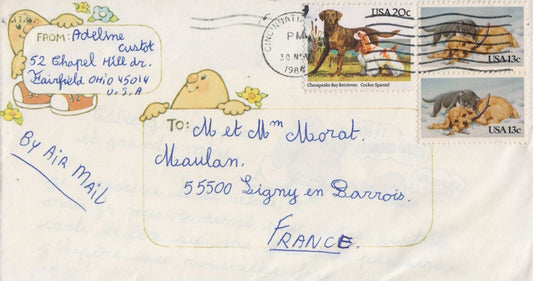 FROM: Adeline
Custot
52 Chapel Hill dr.
Fairfield OHIO 45014
U.S.A
BY AIR MAIL
CINCINNATI
PM
30 NOV
1984
USA 20c
Chesapeake Bay Retriever, Cocker Spaniel
USA 13c
USA 13c
TO: M et Mm Morat.
Maulan.
55500 Ligny en Barrois.
FRANCE.